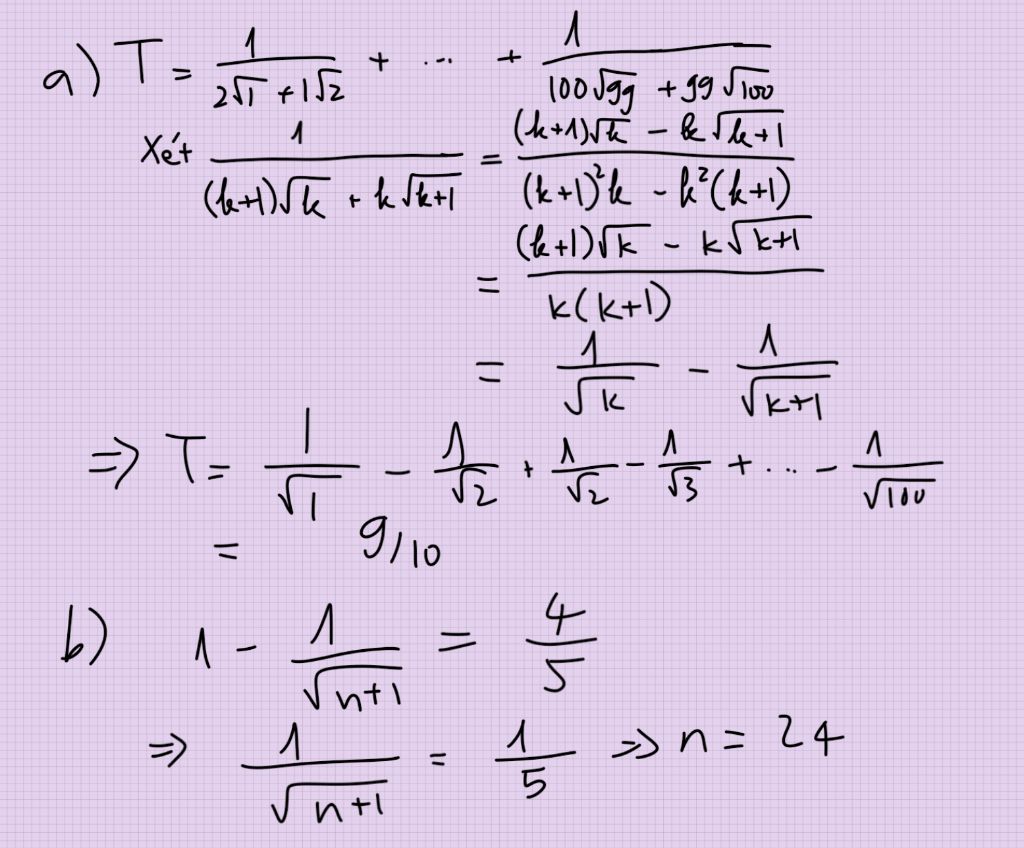 a) T = 1/(2√1 + 1√2) + ... + 1/(100√99 + 99√100)
Xét 1/((k+1)√k + k√(k+1)) = ((k+1)√k - k√(k+1))/((k+1)²k - k²(k+1))
= ((k+1)√k - k√(k+1))/(k(k+1))
= 1/√k - 1/√(k+1)
⇒ T = 1/√1 - 1/√2 + 1/√2 - 1/√3 + ... - 1/√100
= 9/10
b) 1 - 1/√(n+1) = 4/5
⇒ 1/√(n+1) = 1/5 ⇒ n = 24